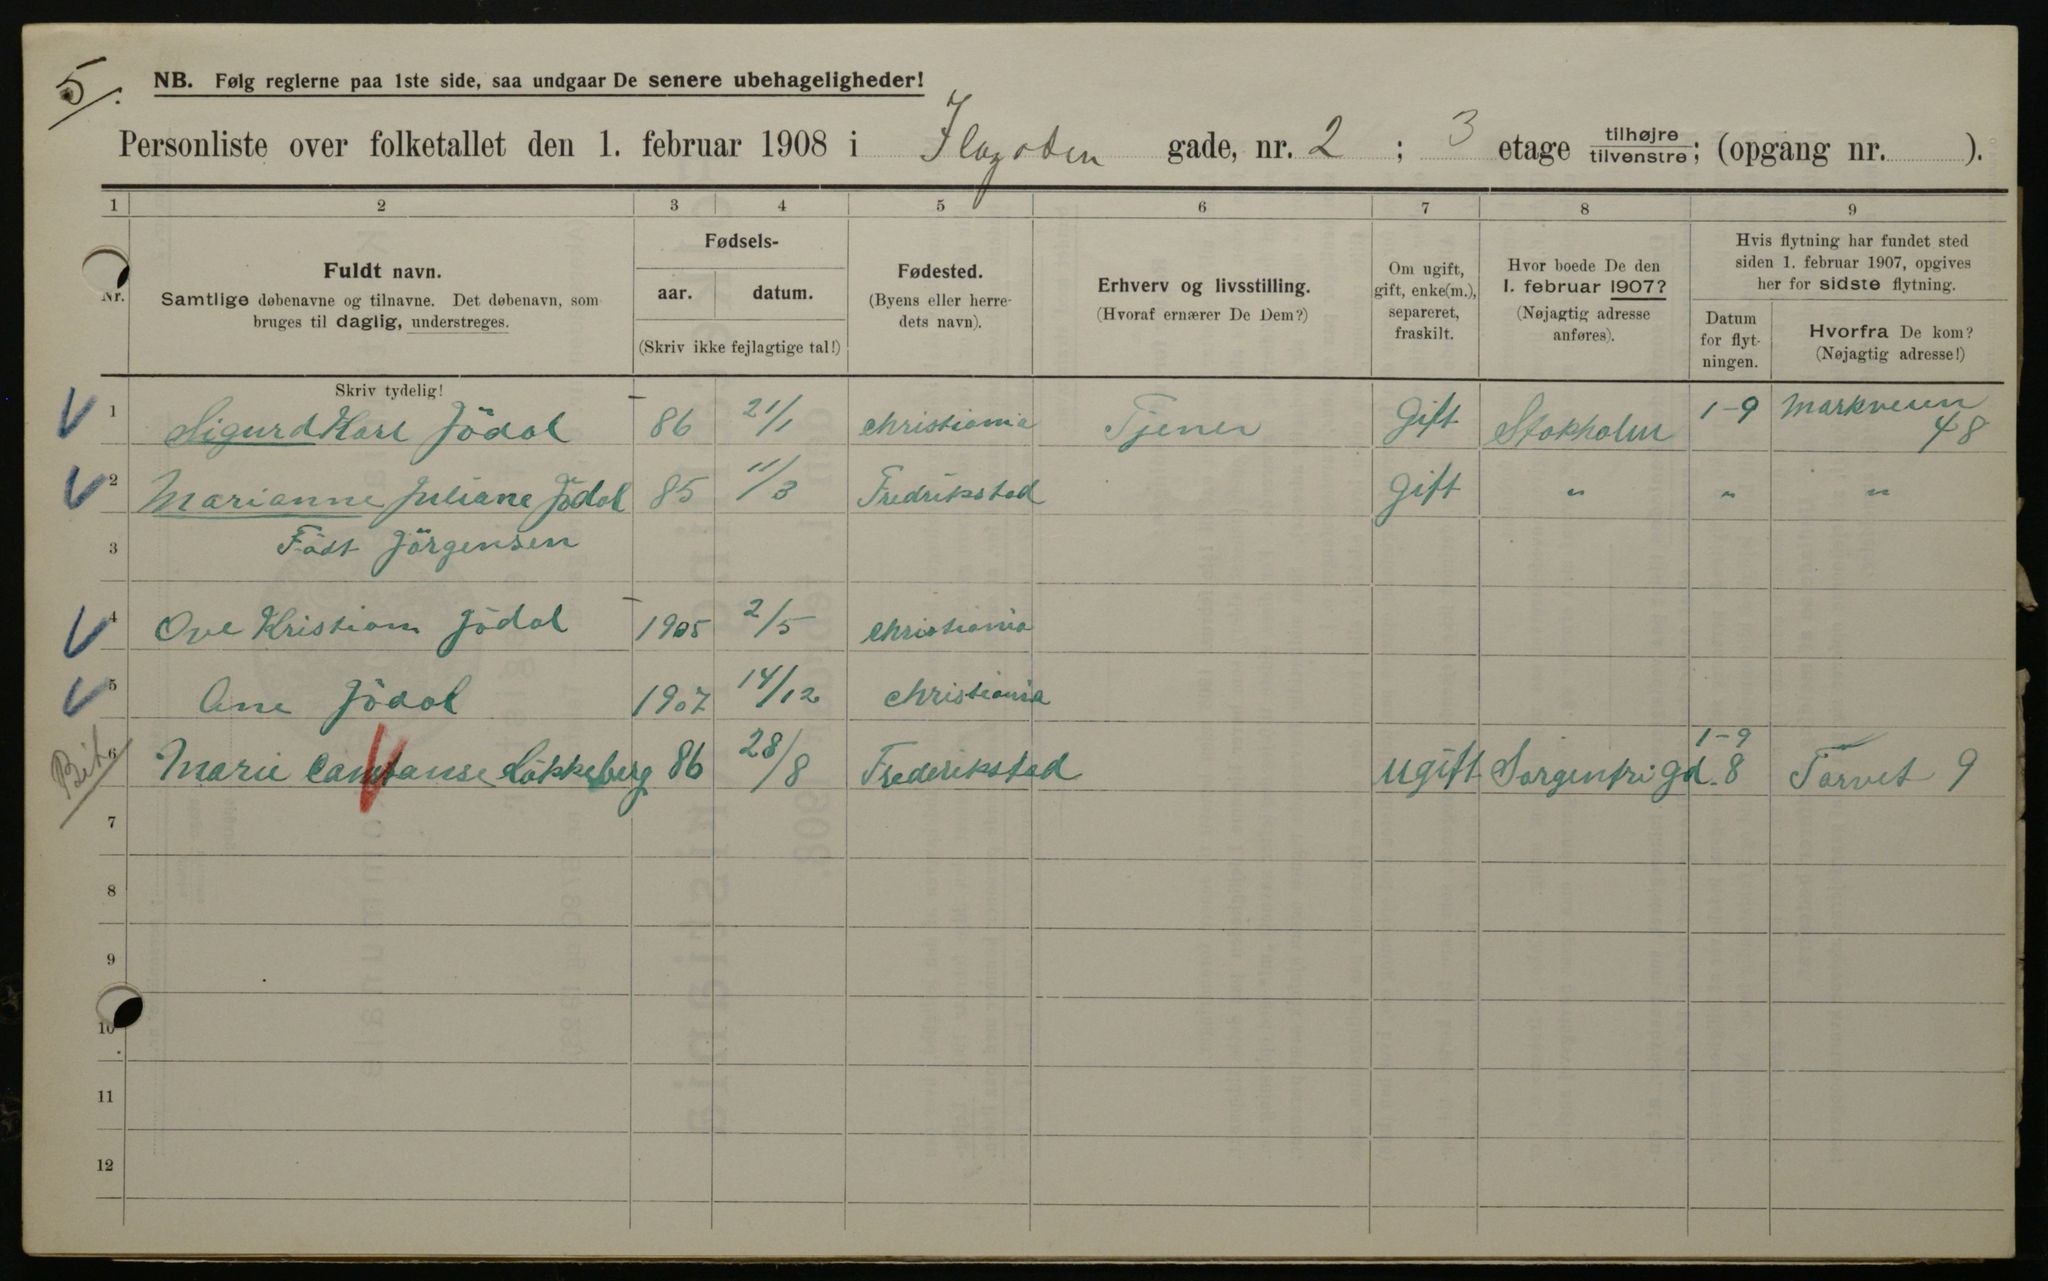 5/.
NB. Følg reglerne paa 1ste side, saa undgaar De senere ubehageligheder!
Personliste over folketallet den 1. februar 1908 i gade, nr. 2 ; 3 etage tilhøjre tilvenstre; (opgang nr. ).
1 2 3 4 5 6 7 8 9
Nr.
Fuldt navn.
Samtlige døbenavne og tilnavne. Det døbenavn, som
bruges til daglig, understreges.
Fødsels-
aar. datum.
(Skriv ikke fejlagtige tal!)
Fødested.
(Byens eller herre-
dets navn).
Erhverv og livsstilling.
(Hvoraf ernærer De Dem?)
Om ugift,
gift, enke(m.),
separeret,
fraskilt.
Hvor boede De den
1. februar 1907?
(Nøjagtig adresse
anføres).
Hvis flytning har fundet sted
siden 1. februar 1907, opgives
her for sidste flytning.
Datum
for flyt-
ningen.
Hvorfra De kom?
(Nøjagtig adresse!)
Skriv tydelig!
1 Sigurd Karl Jödal 86 21/1 Christiania Tjener Gift Stokholm 1-9 Markveien 48
2 Marianne Juliane Jödal 85 11/3 Fredrikstad Gift " " "
3 Födt Jörgensen
4 Ove Kristian Jödal 1905 2/5 Christiania
5 Ane Jödal 1907 14/12 Christiania
6 Marie Lökkeberg 86 28/8 Frederikstad Ugift Sorgenfri gd. 8 1-9 Torvet 9
7
8
9
10
11
12